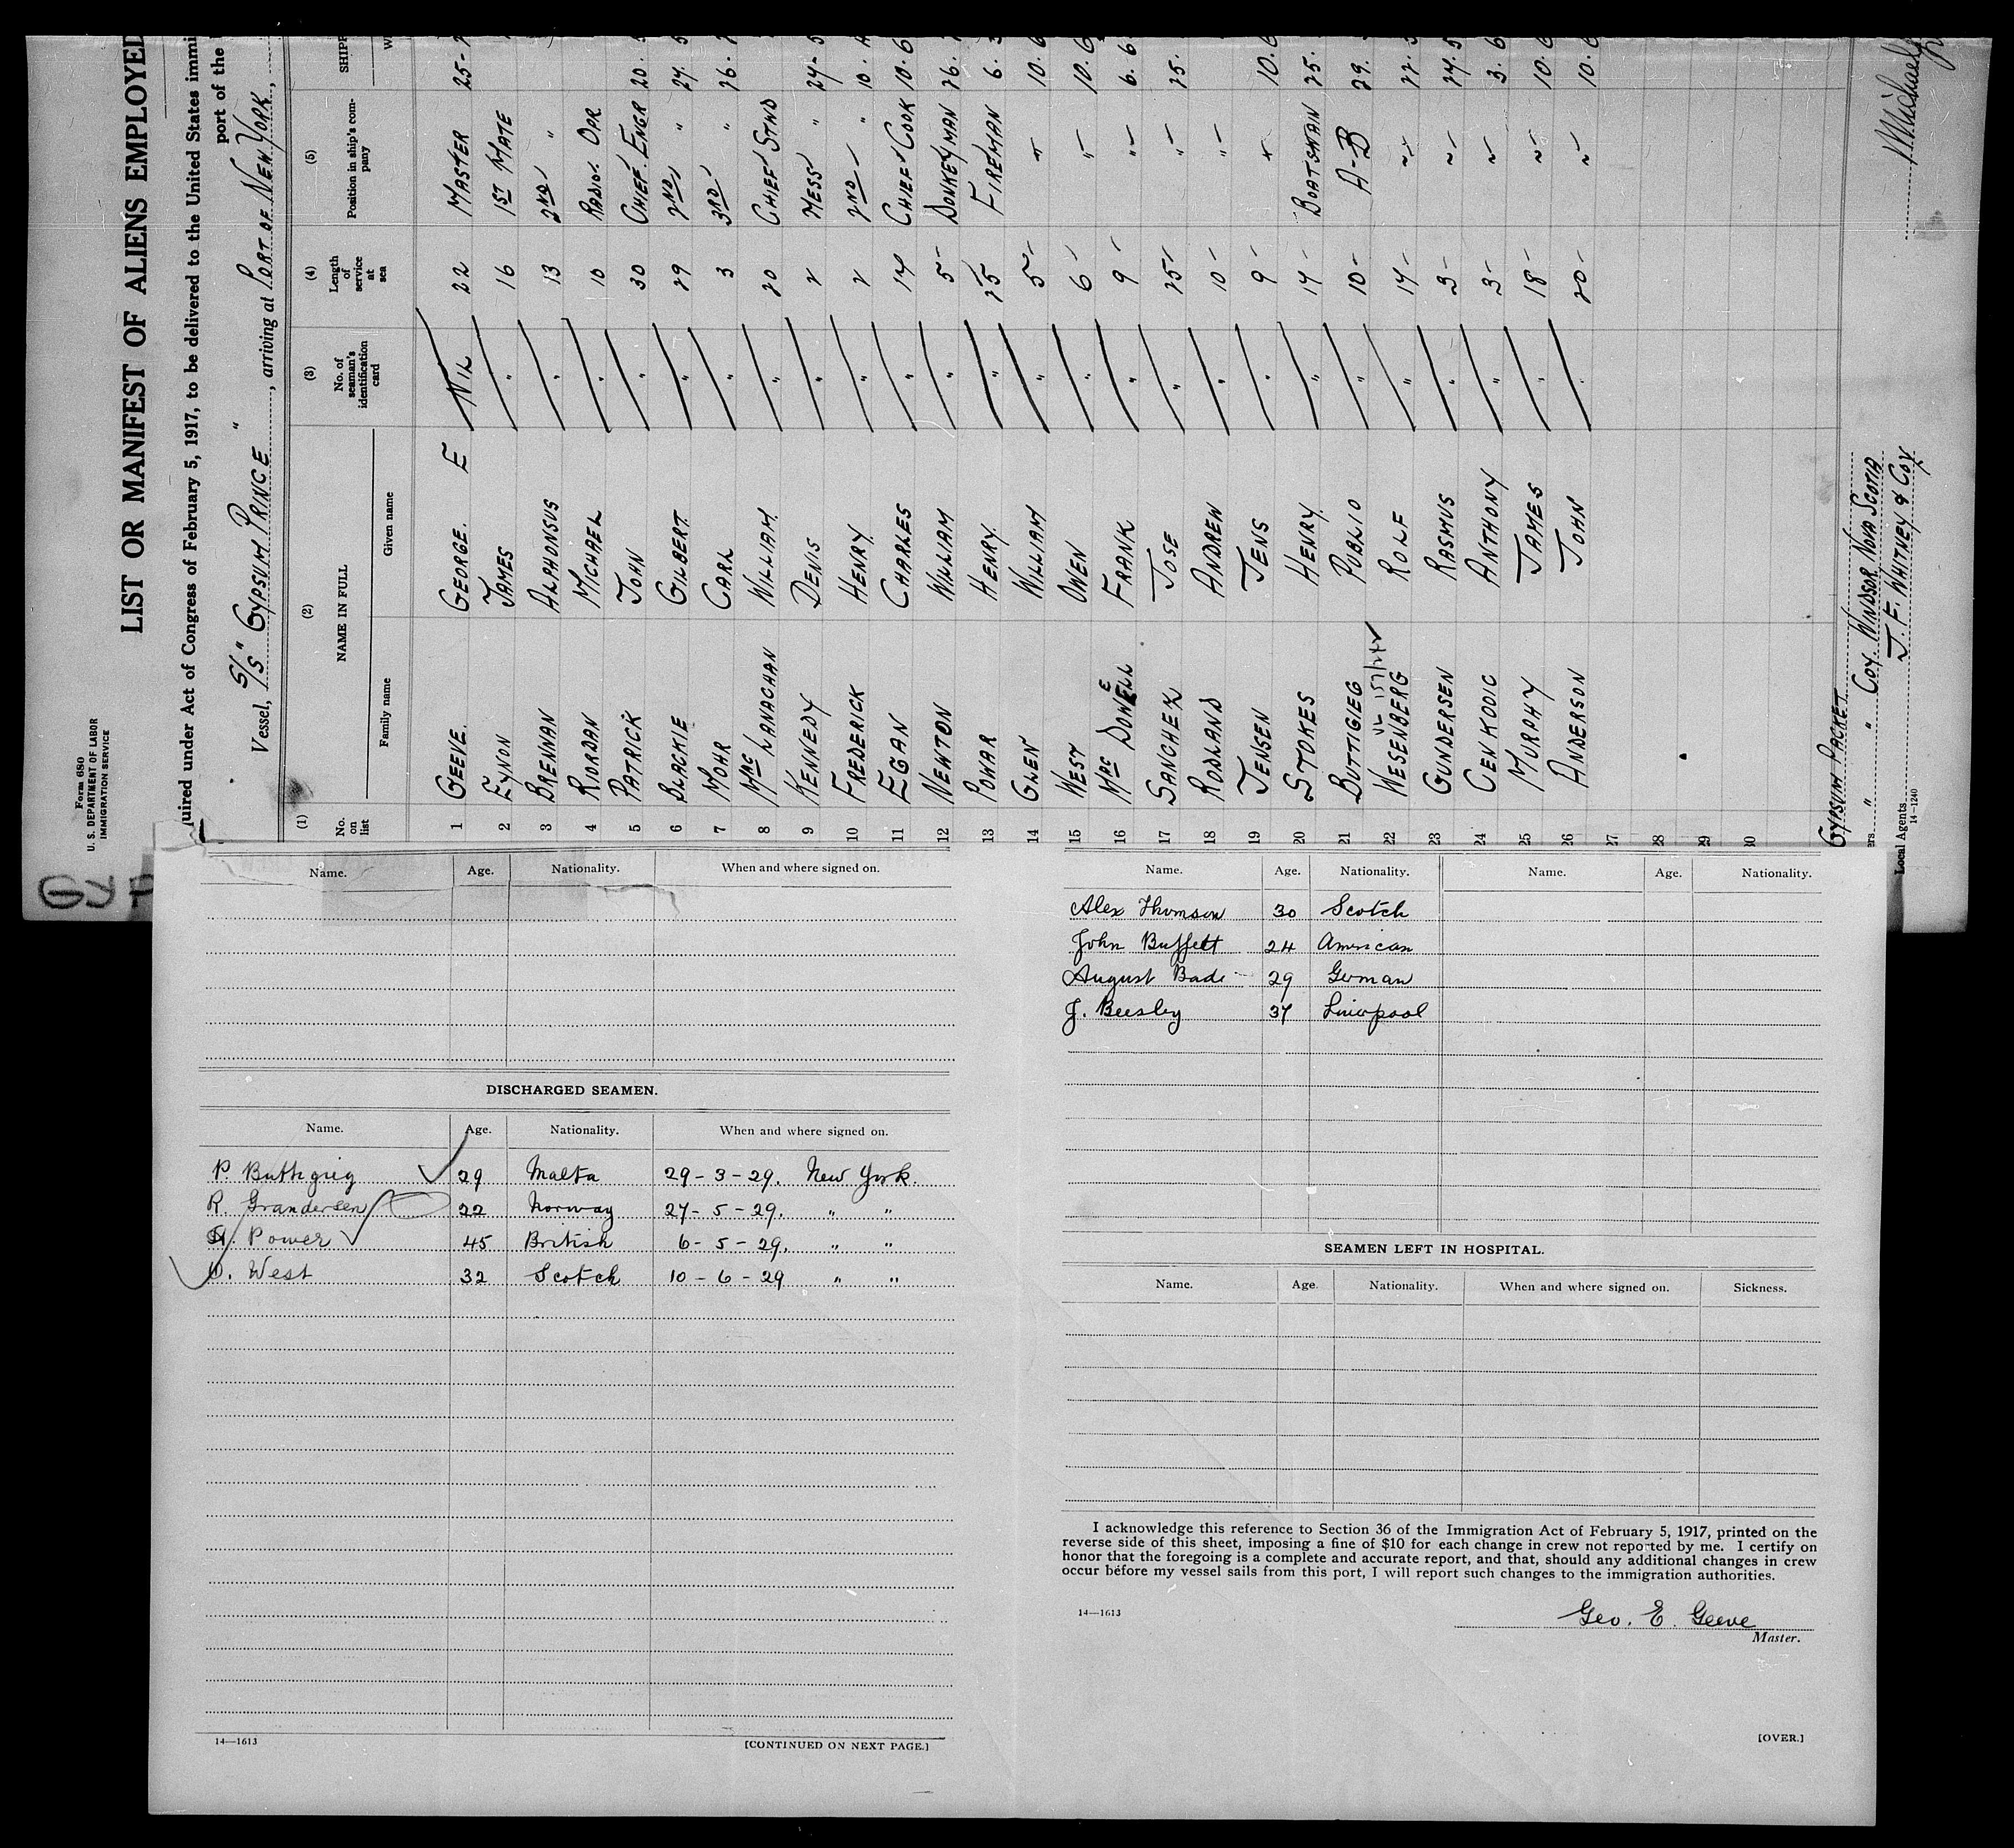 Form 680
U. S. DEPARTMENT OF LABOR
IMMIGRATION SERVICE
LIST OR MANIFEST OF ALIENS EMPLOYED
quired under Act of Congress of February 5, 1917, to be delivered to the United States immi
port of the
Vessel, S/S "GYPSUM PRINCE", arriving at PORT OF NEW YORK,
(1) No. on list (2) NAME IN FULL Family name Given name (3) No. of seaman's identification card (4) Length of service at sea (5) Position in ship's company SHIPP
1 GEEVE. GEORGE. E NIL 22 MASTER 25-
2 EYNON JAMES " 16 1ST MATE
3 BRENNAN ALPHONSUS " 13 2ND "
4 RIORDAN MICHAEL " 10 RADIO OPR
5 PATRICK JOHN " 30 CHIEF ENGR 20.
6 BLACKIE GILBERT " 29 2ND " 27.
7 MOHR CARL " 3 3RD " 26.
8 MAC LANAGHAN WILLIAM " 20 CHIEF STWD
9 KENNEDY DENIS " 2 MESS " 24-5
10 FREDERICK HENRY " 2 2ND " 10.
11 EGAN CHARLES " 14 CHIEF COOK 10.6
12 NEWTON WILLIAM " 5 DONKEYMAN 26.
13 POWAR HENRY " 25 FIREMAN 6.
14 GLEN WILLIAM " 5 " 10.6
15 WEST OWEN " 6 " 10.6
16 MAC DOWELL FRANK " 9 " 6.6
17 SANCHEZ JOSE " 25 " 25.
18 RODLAND ANDREW " 10 "
19 JENSEN JENS " 9 " 10.6
20 STOKES HENRY " 14 BOATSWAIN 25.
21 BUTTIGIEG PUBLIO " 10 A-B 29.
22 WESENBERG ROLF " 14 " 22.
23 GUNDERSEN RASMUS " 3 " 24.5
24 CENKODIC ANTHONY " 3 " 3.6
25 MURPHY JAMES " 18 " 10.6
26 ANDERSON JOHN " 20 " 10.6
27
28
29
30
GYPSUM PACKET
ers " " COY. WINDSOR NOVA SCOTIA
Local Agents J. F. WHITNEY & COY
14-1240
GYP
Name. Age. Nationality. When and where signed on.
DISCHARGED SEAMEN.
Name. Age. Nationality. When and where signed on.
P. Buthgieg 29 Malta 29-3-29. New York.
R. Grandersen 22 Norway 27-5-29. " "
H. Power 45 British 6-5-29. " "
O. West 32 Scotch 10-6-29 " "
14—1613
[CONTINUED ON NEXT PAGE.]
Name. Age. Nationality. Name. Age. Nationality.
Alex Thomson 30 Scotch
John Buffett 24 American
August Bade 29 German
J. Beesley 37 Liverpool
SEAMEN LEFT IN HOSPITAL.
Name. Age. Nationality. When and where signed on. Sickness.
I acknowledge this reference to Section 36 of the Immigration Act of February 5, 1917, printed on the
reverse side of this sheet, imposing a fine of $10 for each change in crew not reported by me. I certify on
honor that the foregoing is a complete and accurate report, and that, should any additional changes in crew
occur before my vessel sails from this port, I will report such changes to the immigration authorities.
14—1613
Geo. E. Geeve
Master.
[OVER.]